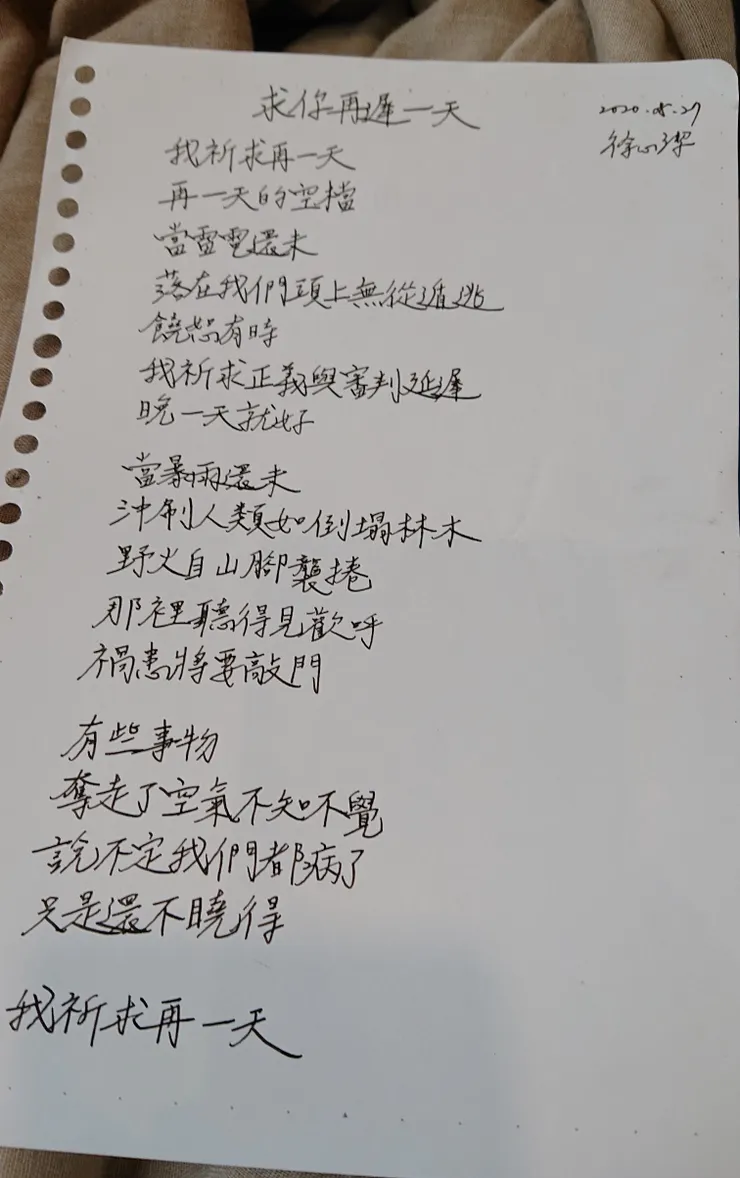 求你再遲一天
2020.05.27
徐心潔
我祈求再一天
再一天的空檔
當雷電還未
落在我們頭上無從遁逃
饒恕有時
我祈求正義與審判延遲
晚一天就好
當暴雨還未
沖刷人類如倒塌林木
野火自山腳襲捲
那裡聽得見歡呼
禍患將要敲門
有些事物
奪走了空氣不知不覺
說不定我們都病了
只是還不曉得
我祈求再一天